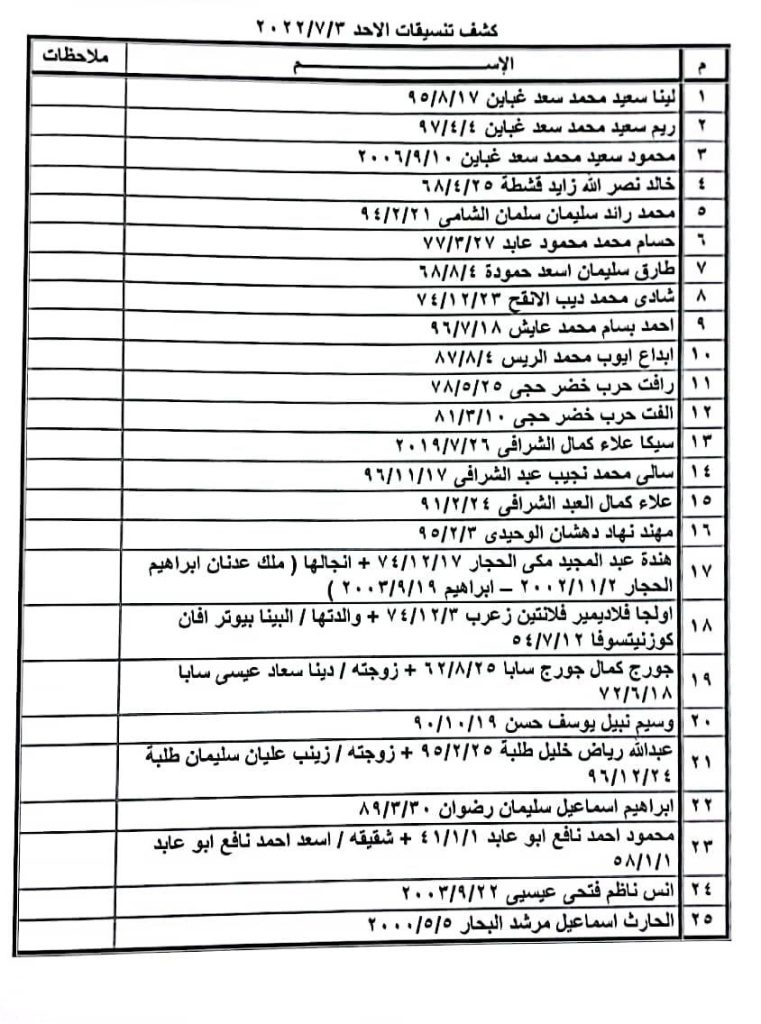 كشف تنسيقات الاحد ٢٠٢٢/٧/٣
م الإســـــــــم ملاحظات
١ لينا سعيد محمد سعد غباين ٩٥/٨/١٧
٢ ريم سعيد محمد سعد غباين ٩٧/٤/٤
٣ محمود سعيد محمد سعد غباين ٢٠٠٦/٩/١٠
٤ خالد نصر الله زايد قشطة ٦٨/٤/٢٥
٥ محمد رائد سليمان سلمان الشامى ٩٤/٢/٢١
٦ حسام محمد محمود عابد ٧٧/٣/٢٧
٧ طارق سليمان اسعد حمودة ٦٨/٨/٤
٨ شادى محمد ديب الانقح ٧٤/١٢/٢٣
٩ احمد بسام محمد عايش ٩٦/٧/١٨
١٠ ابداع ايوب محمد الريس ٨٧/٨/٤
١١ رافت حرب خضر حجى ٧٨/٥/٢٥
١٢ الفت حرب خضر حجى ٨١/٣/١٠
١٣ سيكا علاء كمال الشرافى ٢٠١٩/٧/٢٦
١٤ سالى محمد نجيب عبد الشرافى ٩٦/١١/١٧
١٥ علاء كمال العبد الشرافى ٩١/٢/٢٤
١٦ مهند نهاد دهشان الوحيدى ٩٥/٢/٣
١٧ هندة عبد المجيد مكى الحجار ٧٤/١٢/١٧ + انجالها ( ملك عدنان ابراهيم
الحجار ٢٠٠٢/١١/٢ – ابراهيم ٢٠٠٣/٩/١٩ )
١٨ اولجا فلاديمير فلانتين زعرب ٧٤/١٢/٣ + والدتها / البينا بيوتر افان
كوزنيتسوفا ٥٤/٧/١٢
١٩ جورج كمال جورج سابا ٦٢/٨/٢٥ + زوجته / دينا سعاد عيسى سابا
٧٢/٦/١٨
٢٠ وسيم نبيل يوسف حسن ٩٠/١٠/١٩
٢١ عبدالله رياض خليل طلبة ٩٥/٢/٢٥ + زوجته / زينب عليان سليمان طلبة
٩٦/١٢/٢٤
٢٢ ابراهيم اسماعيل سليمان رضوان ٨٩/٣/٣٠
٢٣ محمود احمد نافع ابو عابد ٤١/١/١ + شقيقه / اسعد احمد نافع ابو عابد
٥٨/١/١
٢٤ انس ناظم فتحى عيسيى ٢٠٠٣/٩/٢٢
٢٥ الحارث اسماعيل مرشد البحار ٢٠٠٠/٥/٥